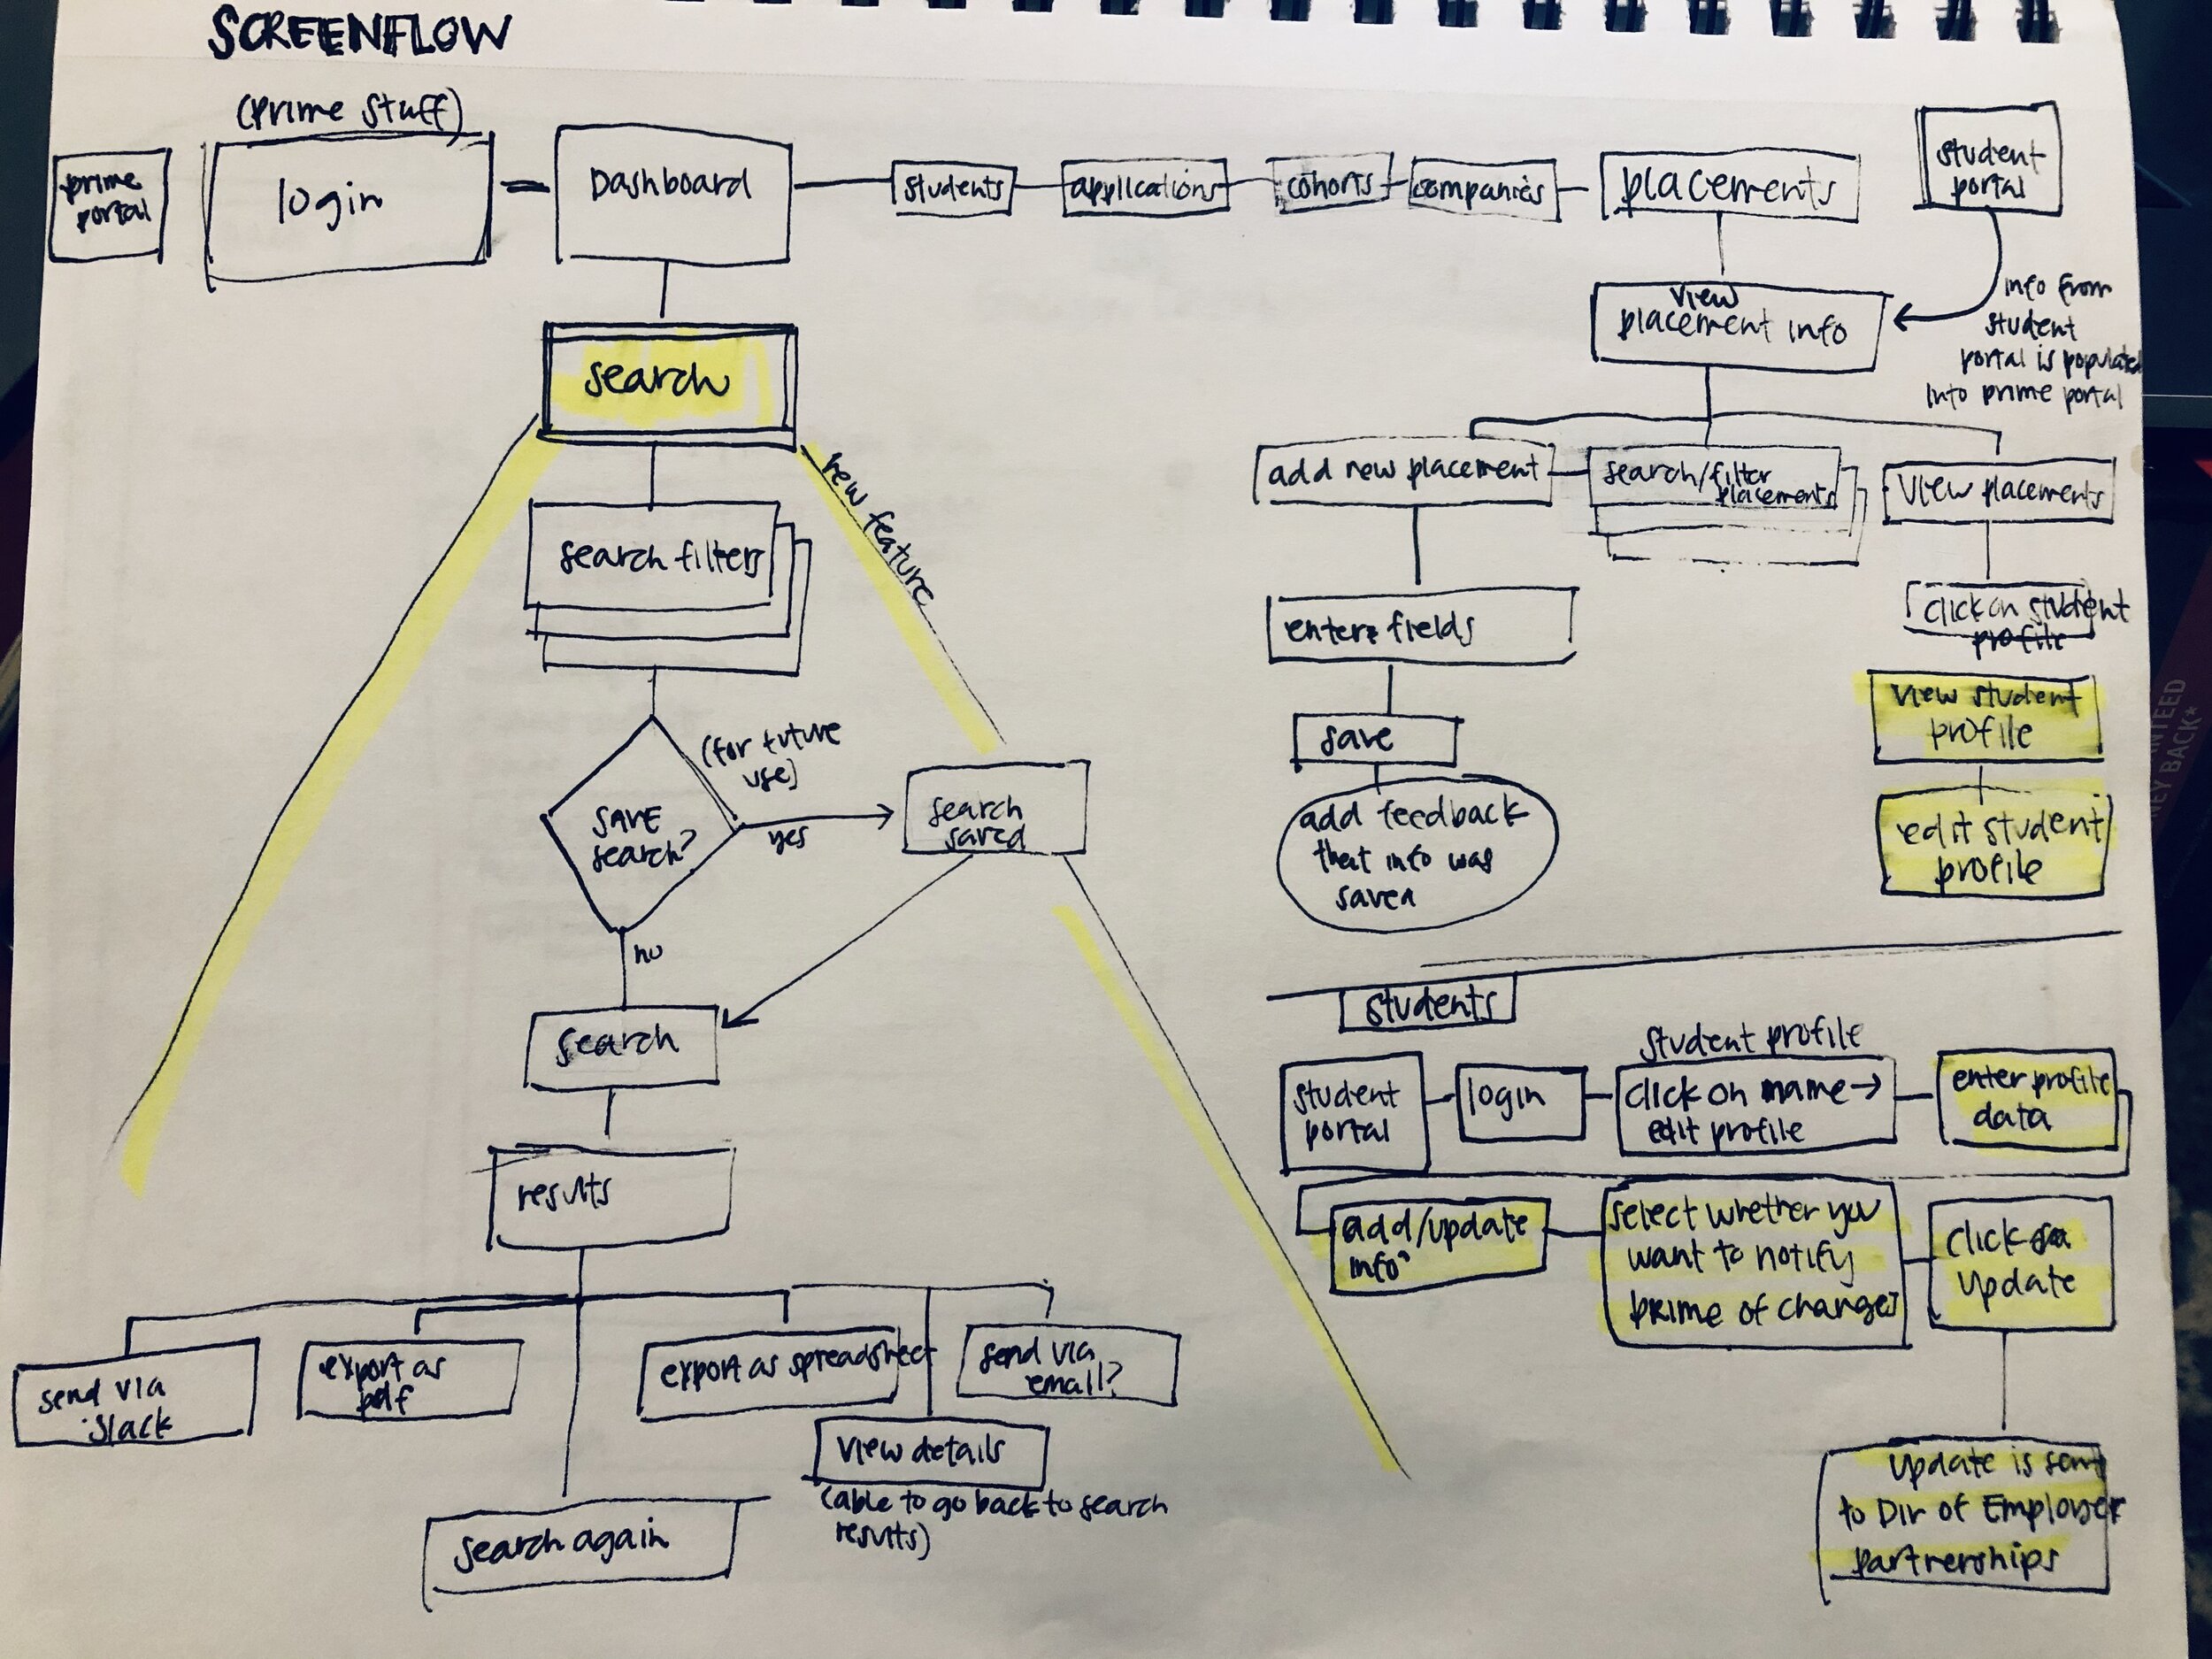 SCREENFLOW
(prime stuff)
prime
portal
login
Dashboard
students
applications
cohorts
companies
placements
student
portal
view
placement info
info from
student
portal is populated
into prime portal
search
new feature
search filters
(for future
use)
SAVE
search?
yes
search
saved
no
search
results
send via
slack
export as
pdf
export as spreadsheet
send via
email?
view details
(able to go back to search
results)
search again
add new placement
search/filter
placements
view placements
enter fields
save
add feedback
that info was
saved
click on student
profile
view student
profile
edit student
profile
students
student
portal
login
student profile
click on name →
edit profile
enter profile
data
add/update
info
select whether you
want to notify
prime of changes
click
update
update is sent
to Dir of Employer
partnerships
NEY BACK*